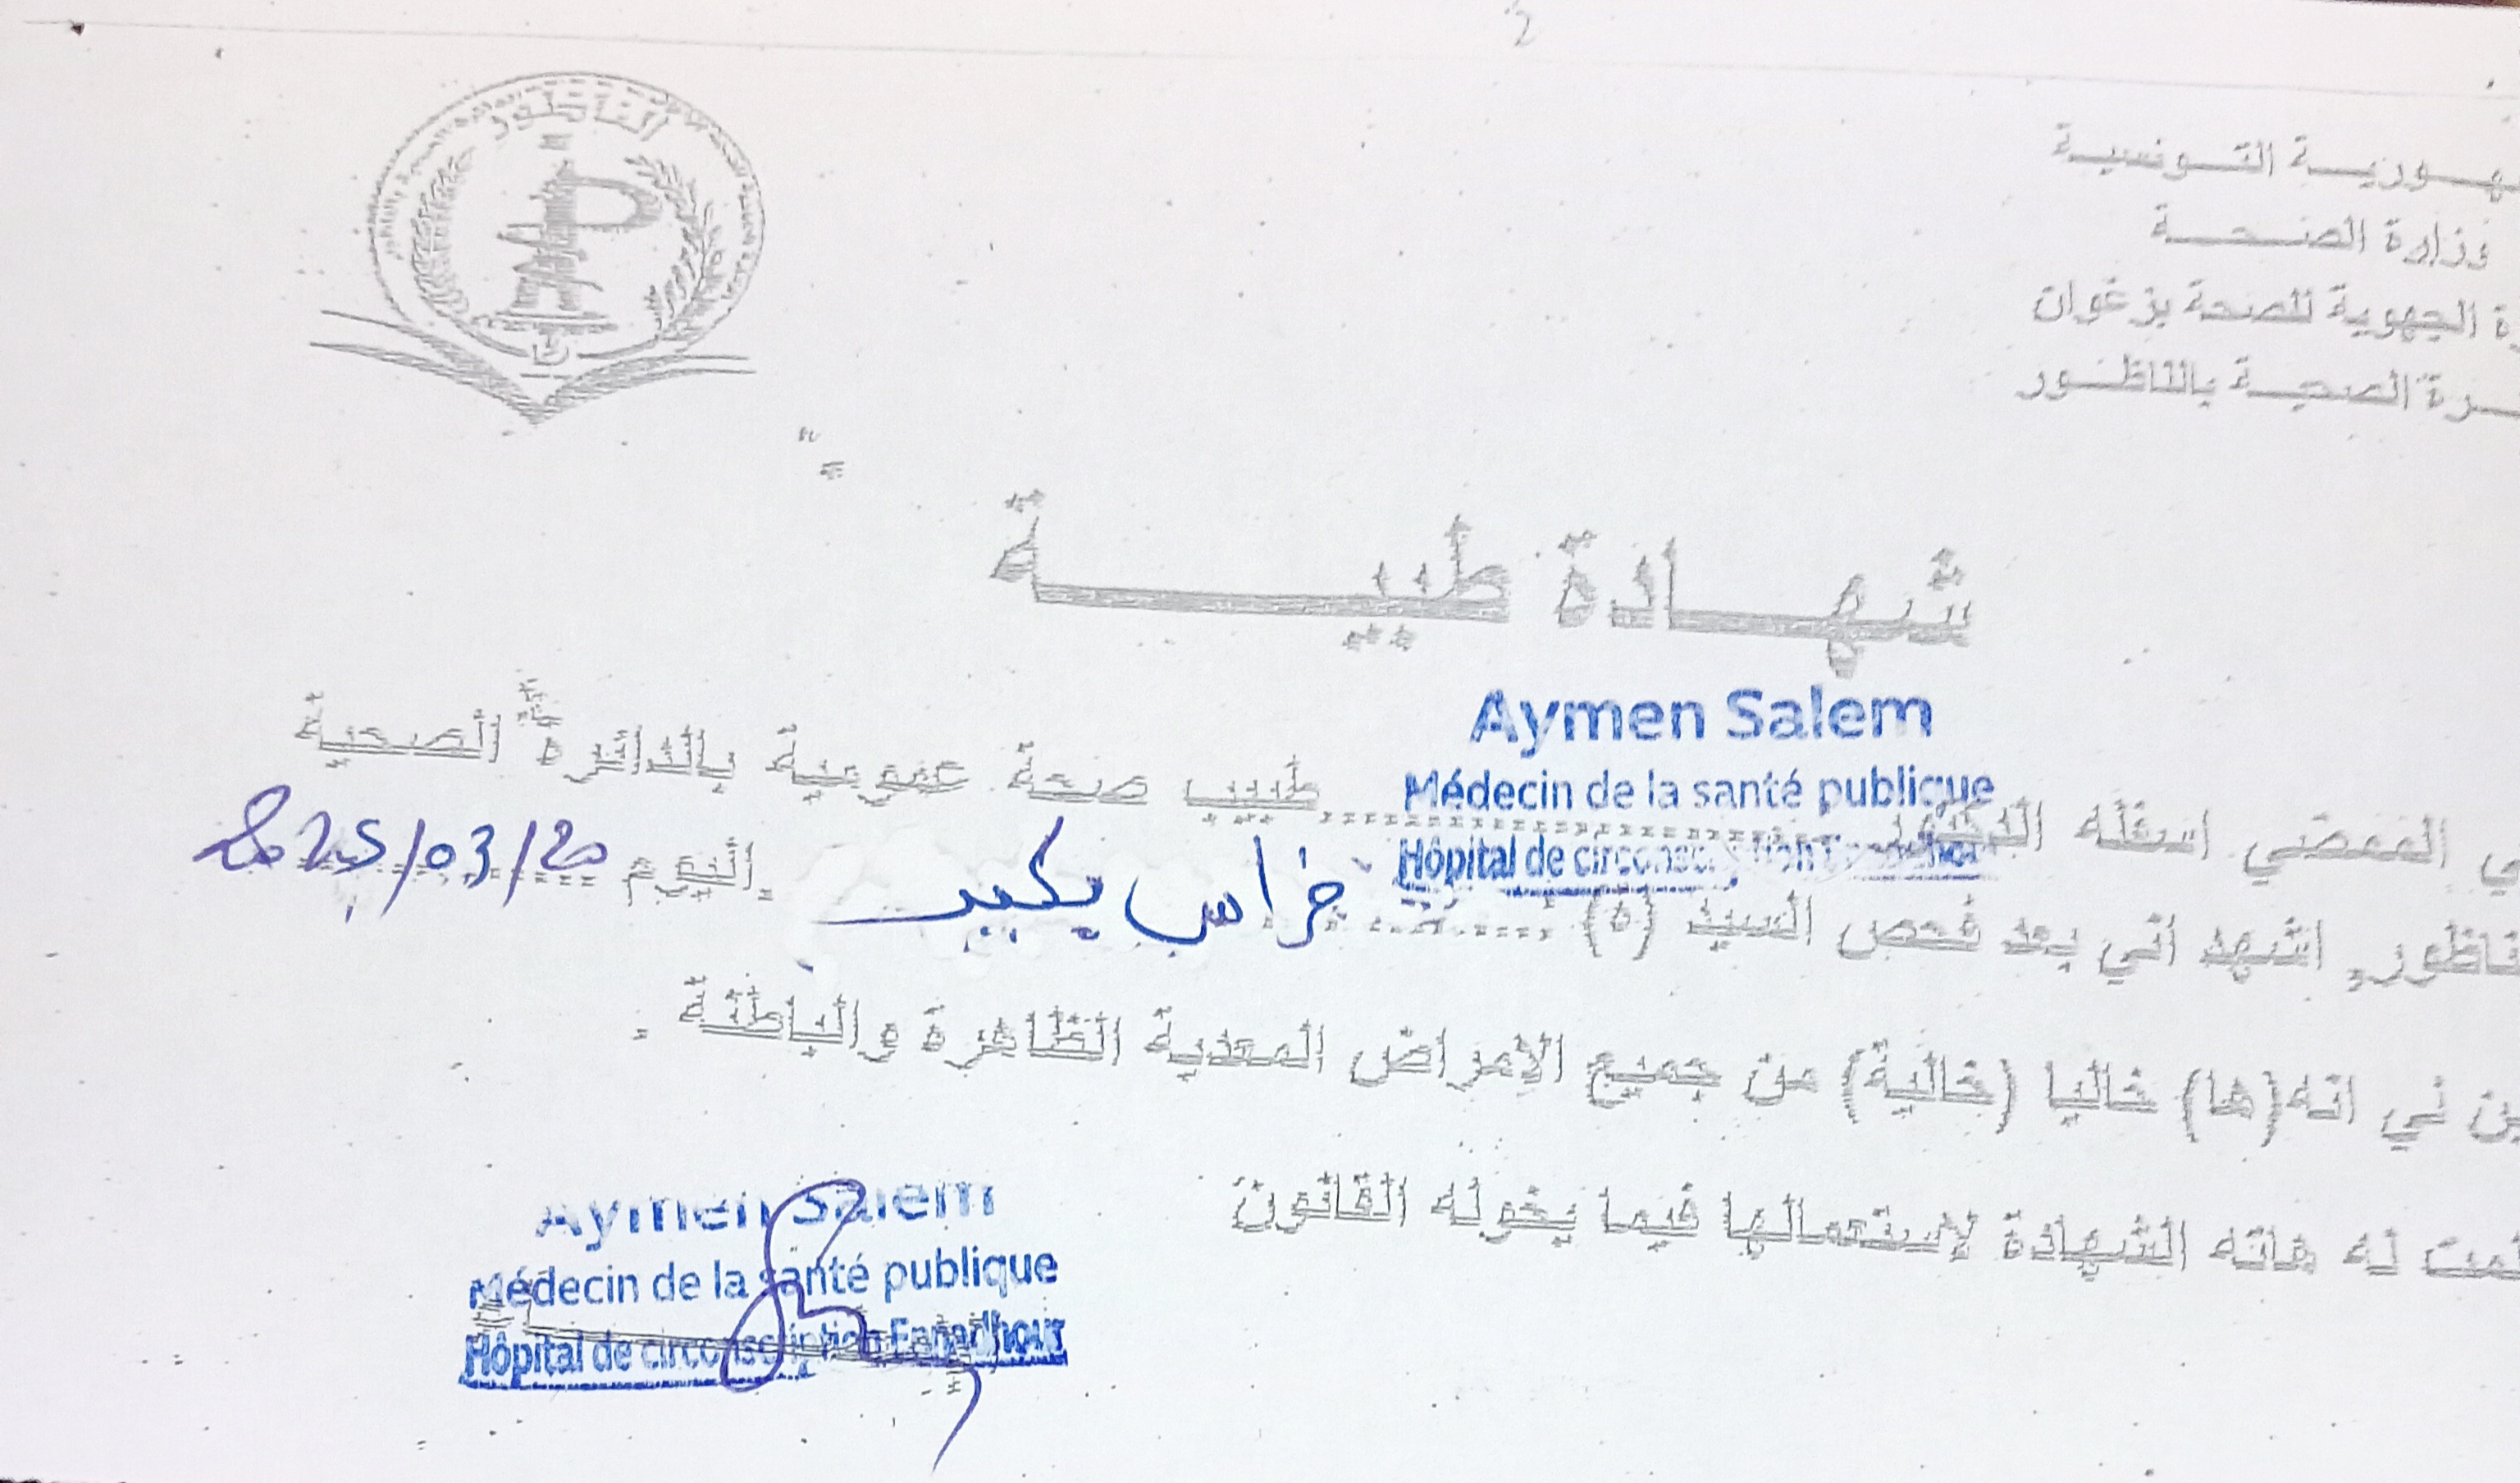 الناظور
التونسية
وزارة الصحة
الجهوية للصحة بزغوان
الصحية بالناظور
شهادة طبية
Aymen Salem
Médecin de la santé publique
Hôpital de circonscription
الممضي اسفله طبيب صحة عمومية بالدائرة الصحية
اشهد اني بعد فحص السيد (ة) اليوم 2025/03/20
ني انه(ها) خاليا (خالية) من جميع الامراض المعدية الظاهرة والباطنة .
له هاته الشهادة لاستعمالها فيما يخوله القانون
Aymen Salem
Médecin de la santé publique
Hôpital de circonscription Ennadhour